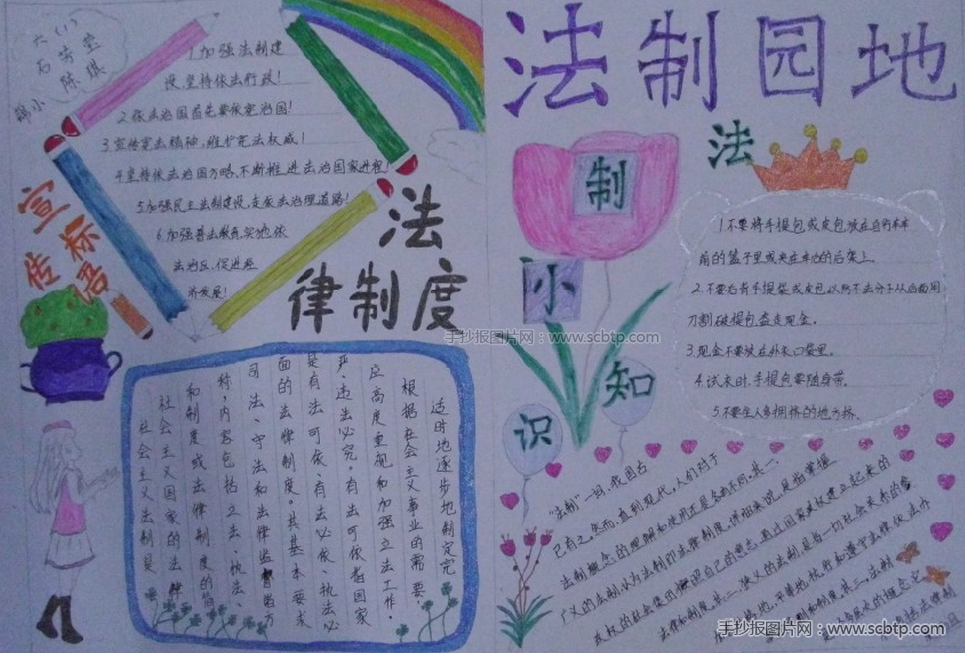 法制园地
六(1)
石芳莹
陈琪
宣传标语
1.加强法制建
设,坚持依法行政!
2.依法治国首先要依宪治国!
3.宣传宪法精神,维护宪法权威!
4.坚持依法治国方略,不断推进法治国家进程!
5.加强民主法制建设,走依法治理道路!
6.加强普法教育,实施依
法治区,促进经
济发展!
法
律制度
适时地逐步地制定完
根据社会主义事业的需要,
应高度重视和加强立法工作,
严,违法必究。有法可依者国家
是有法可依,有法必依,执法必
面的法律制度。其基本要求
司法、守法和法律监督各方
称,内容包括立法、执法、
和制度或法律制度的简
社会主义国家的法律
社会主义法制是
法
制
小
知
识
1.不要将手提包或皮包放在自行车车
前的篮子里或夹在车的后架上。
2.不要右背手提袋或皮包以防不法分子从后面用
刀割破提包盗走现金。
3.现金不要放在外衣口袋里。
4.试衣时,手提包要随身带。
5.不要坐人多拥挤的地方挤。
“法制”一词,我国古
已有之。然而,直到现代,人们对于
法制概念的理解和使用还是各有不同。其一、
广义的法制,认为法制即法律制度。详细来说,是指掌握
政权的社会集团按照自己的意志、通过国家政权建立起来的
法律和制度。其二、狭义的法制,是指一切社会关系的参
手抄报图片网:www.scbtp.com
手抄报图片网:www.scbtp.com